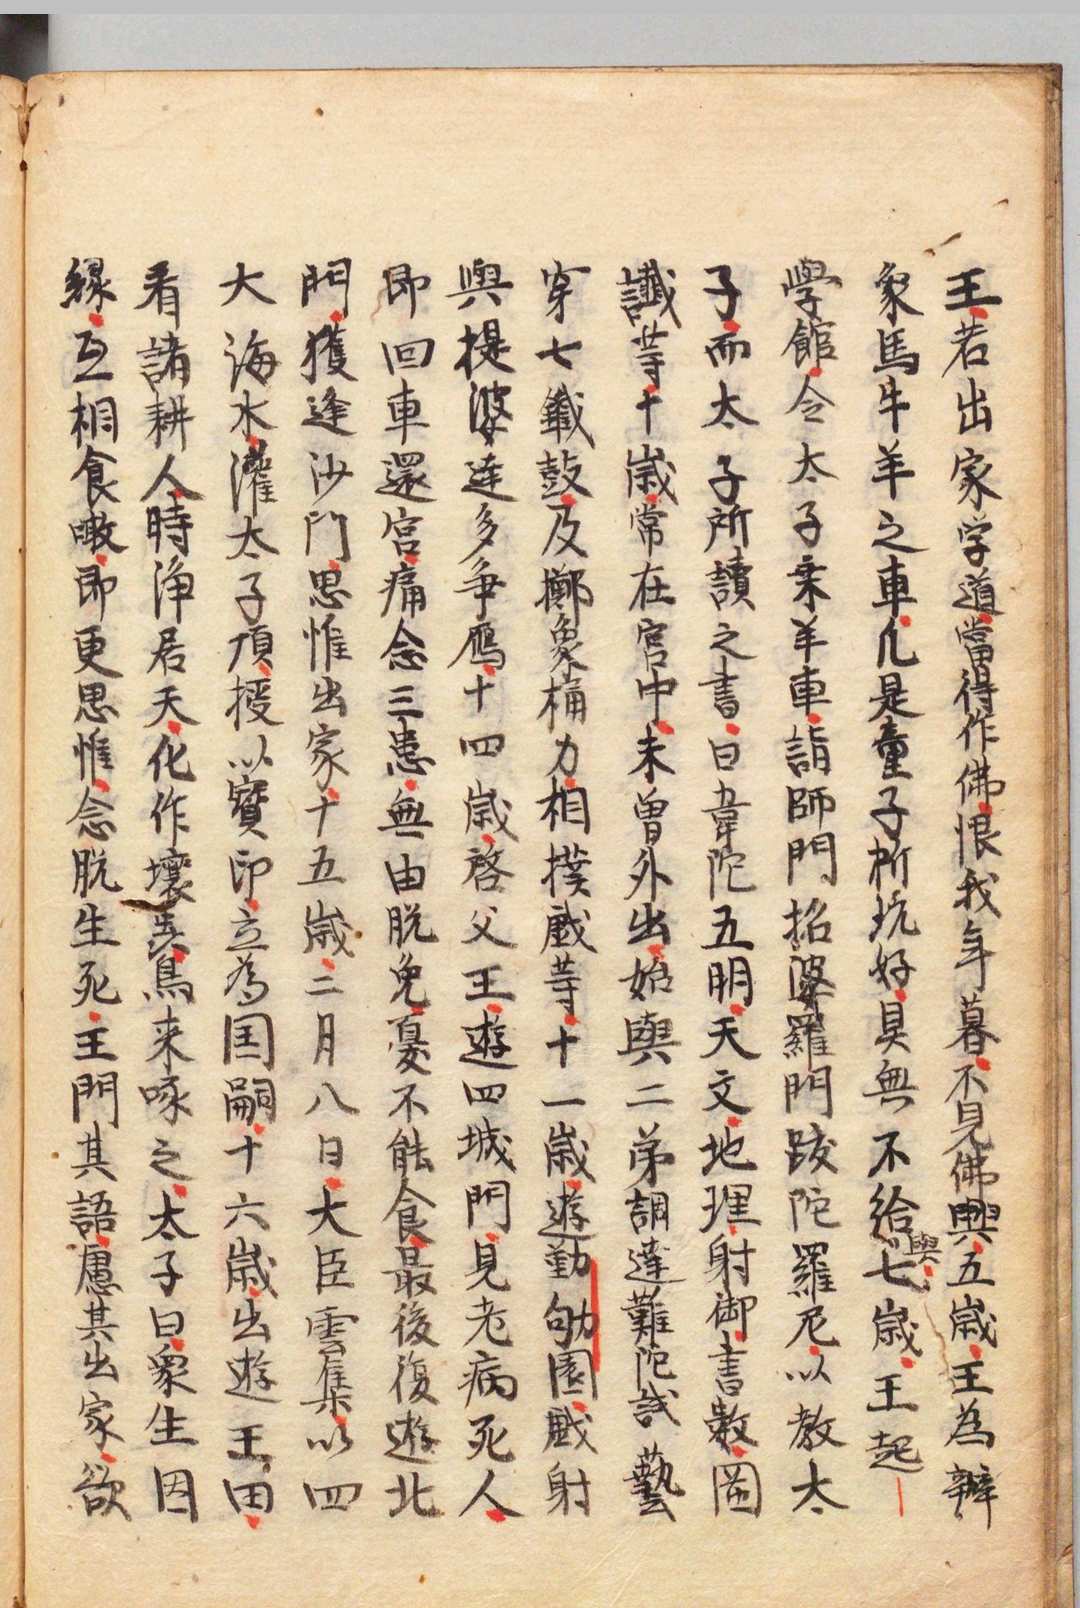 王若出家学道當得作佛恨我年暮不見佛興五歳王為辦
象馬牛羊之車凡是童子所玩好具無不給與七歳王起
學館令太子乗羊車詣師門招婆羅門跋陀羅尼以教太
子而太子所讀之書曰韋陀五明天文地理射御書数圖
讖等十歳常在宮中未曽外出始與二弟調達難陀試藝
穿七鐵鼓及擲象桶力相撲戯等十一歳遊勤劬園戯射
與提婆達多争鴈十四歳啓父王遊四城門見老病死人
即回車還宮痛念三患無由脱免憂不能食最後復遊北
門獲逢沙門思惟出家十五歳二月八日大臣雲集以四
大海水灌太子頂授以寳印立為国嗣十六歳出遊王田
看諸耕人時浄居天化作壤虫鳥来啄之太子曰衆生因
縁互相食噉即更思惟念脱生死王門其語慮其出家欲